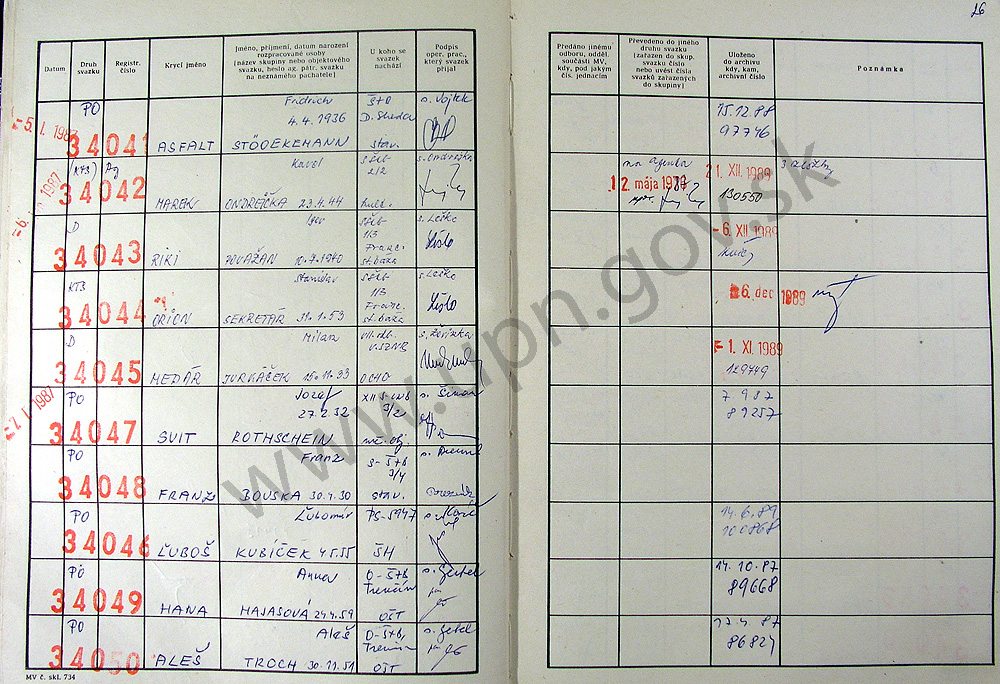 26
Datum
Druh svazku
Registr. číslo
Krycí jméno
Jméno, příjmení, datum narození rozpracované osoby
(název skupiny nebo objektového svazku, heslo ag. pátr. svazku na neznámého pachatele)
U koho se svazek nachází
Podpis oper. prac., který svazek přijal
Předáno jinému odboru, odděl. součásti MV, kdy, pod jakým čís. jednacím
Převedeno do jiného druhu svazku (zařazen do skup. svazku číslo nebo uvést čísla svazků zařazených do skupiny)
Uloženo do archivu kdy, kam, archivní číslo
Poznámka
-5. I. 1987
PO
34041
ASFALT
Fridrich
4. 4. 1936
D. Streda
stav.
s. Vojtek
15.12.88
97746
(KTS) Ag
34042
MAREK
Karol
ONDREJČKA 23.4.44
2/2
na agenta
12. mája
21. XII. 1989
130550
D
34043
RIKI
Igor
POVAŽAN 10.7.1940
1/3
Franc.
st. báza
s. Leško
-6. XII. 1989
KTS
34044
ORION
Stanislav
SEKRETÁR 31.1.53
1/3
Franc.
st. báza
s. Leško
26. dec 1989
D
34045
MEDÁR
Milan
JURKÁČEK 15.11.33
-1. XI. 1989
129449
-7. I. 1987
PO
34047
SVIT
Jozef
27.2.32
ROTHSCHEIN
3/2
7 9 87
89257
PO
34048
FRANZ
Franz
BOUSKA 30.4.30
S-ŠtB
3/4
stav.
PO
34046
ĽUBOŠ
Ľubomír
KUBÍČEK 4.5.55
PS-5947
ŠH
14.6.89
100868
PO
34049
HANA
Anna
MAJASOVÁ 24.4.59
O-ŠtB
Trenčín
OŠT
14.10.87
89668
PO
34050
ALEŠ
Aleš
TROCH 30.11.51
O-ŠtB,
Trenčín
OŠT
17.4.87
86824
MV č. skl. 734
www.upn.gov.sk